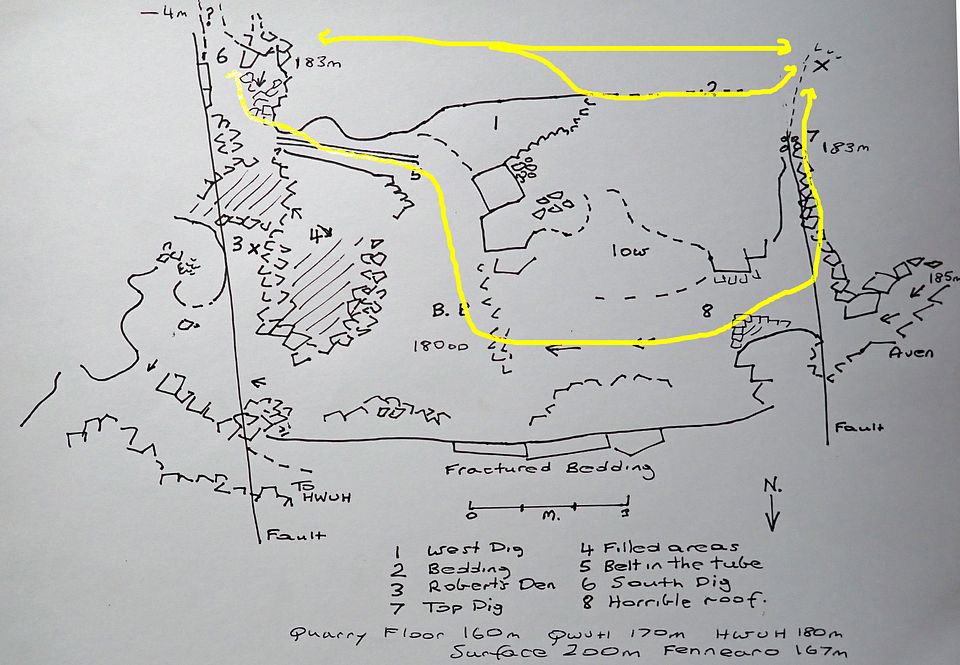 -4m ?
6
183m
X
1
2
7
183m
5
3 x
4
low
185m
B.E
8
18000
Aven
Fault
Fractured Bedding
To
HWUH
N.
0 M. 3
Fault
1 West Dig 4 Filled areas
2 Bedding 5 Belt in the tube
3 Roberts Den 6 South Dig
7 Top Dig 8 Horrible roof.
Quarry Floor 160m QWUH 170m HWUH 180m
Surface 200m Fennearo 167m